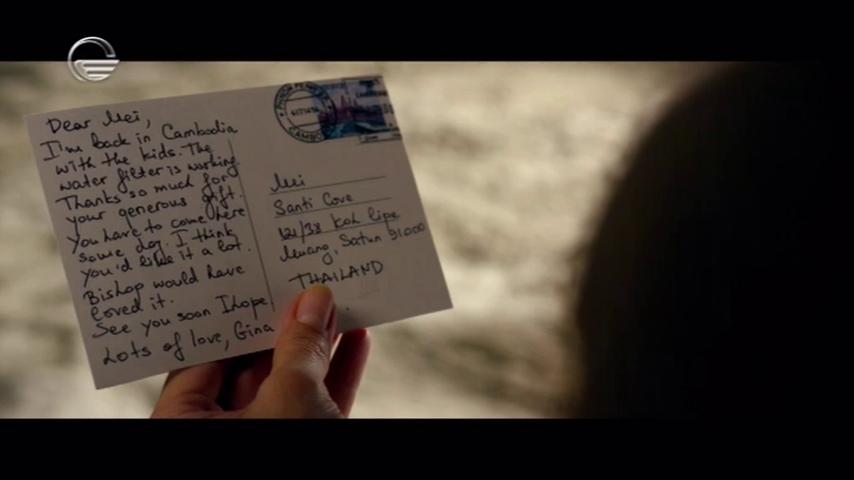 Dear Mei,
I'm back in Cambodia
with the kids. The
water filter is working.
Thanks so much for
your generous gift.
You have to come here
some day. I think
you'd like it a lot.
Bishop would have
loved it.
See you soon I hope
Lots of love, Gina
PHNOM PENH
CAMBO
Mei
Santi Cove
121/38 Koh Lipe
Muang, Satun 91000
THAILAND